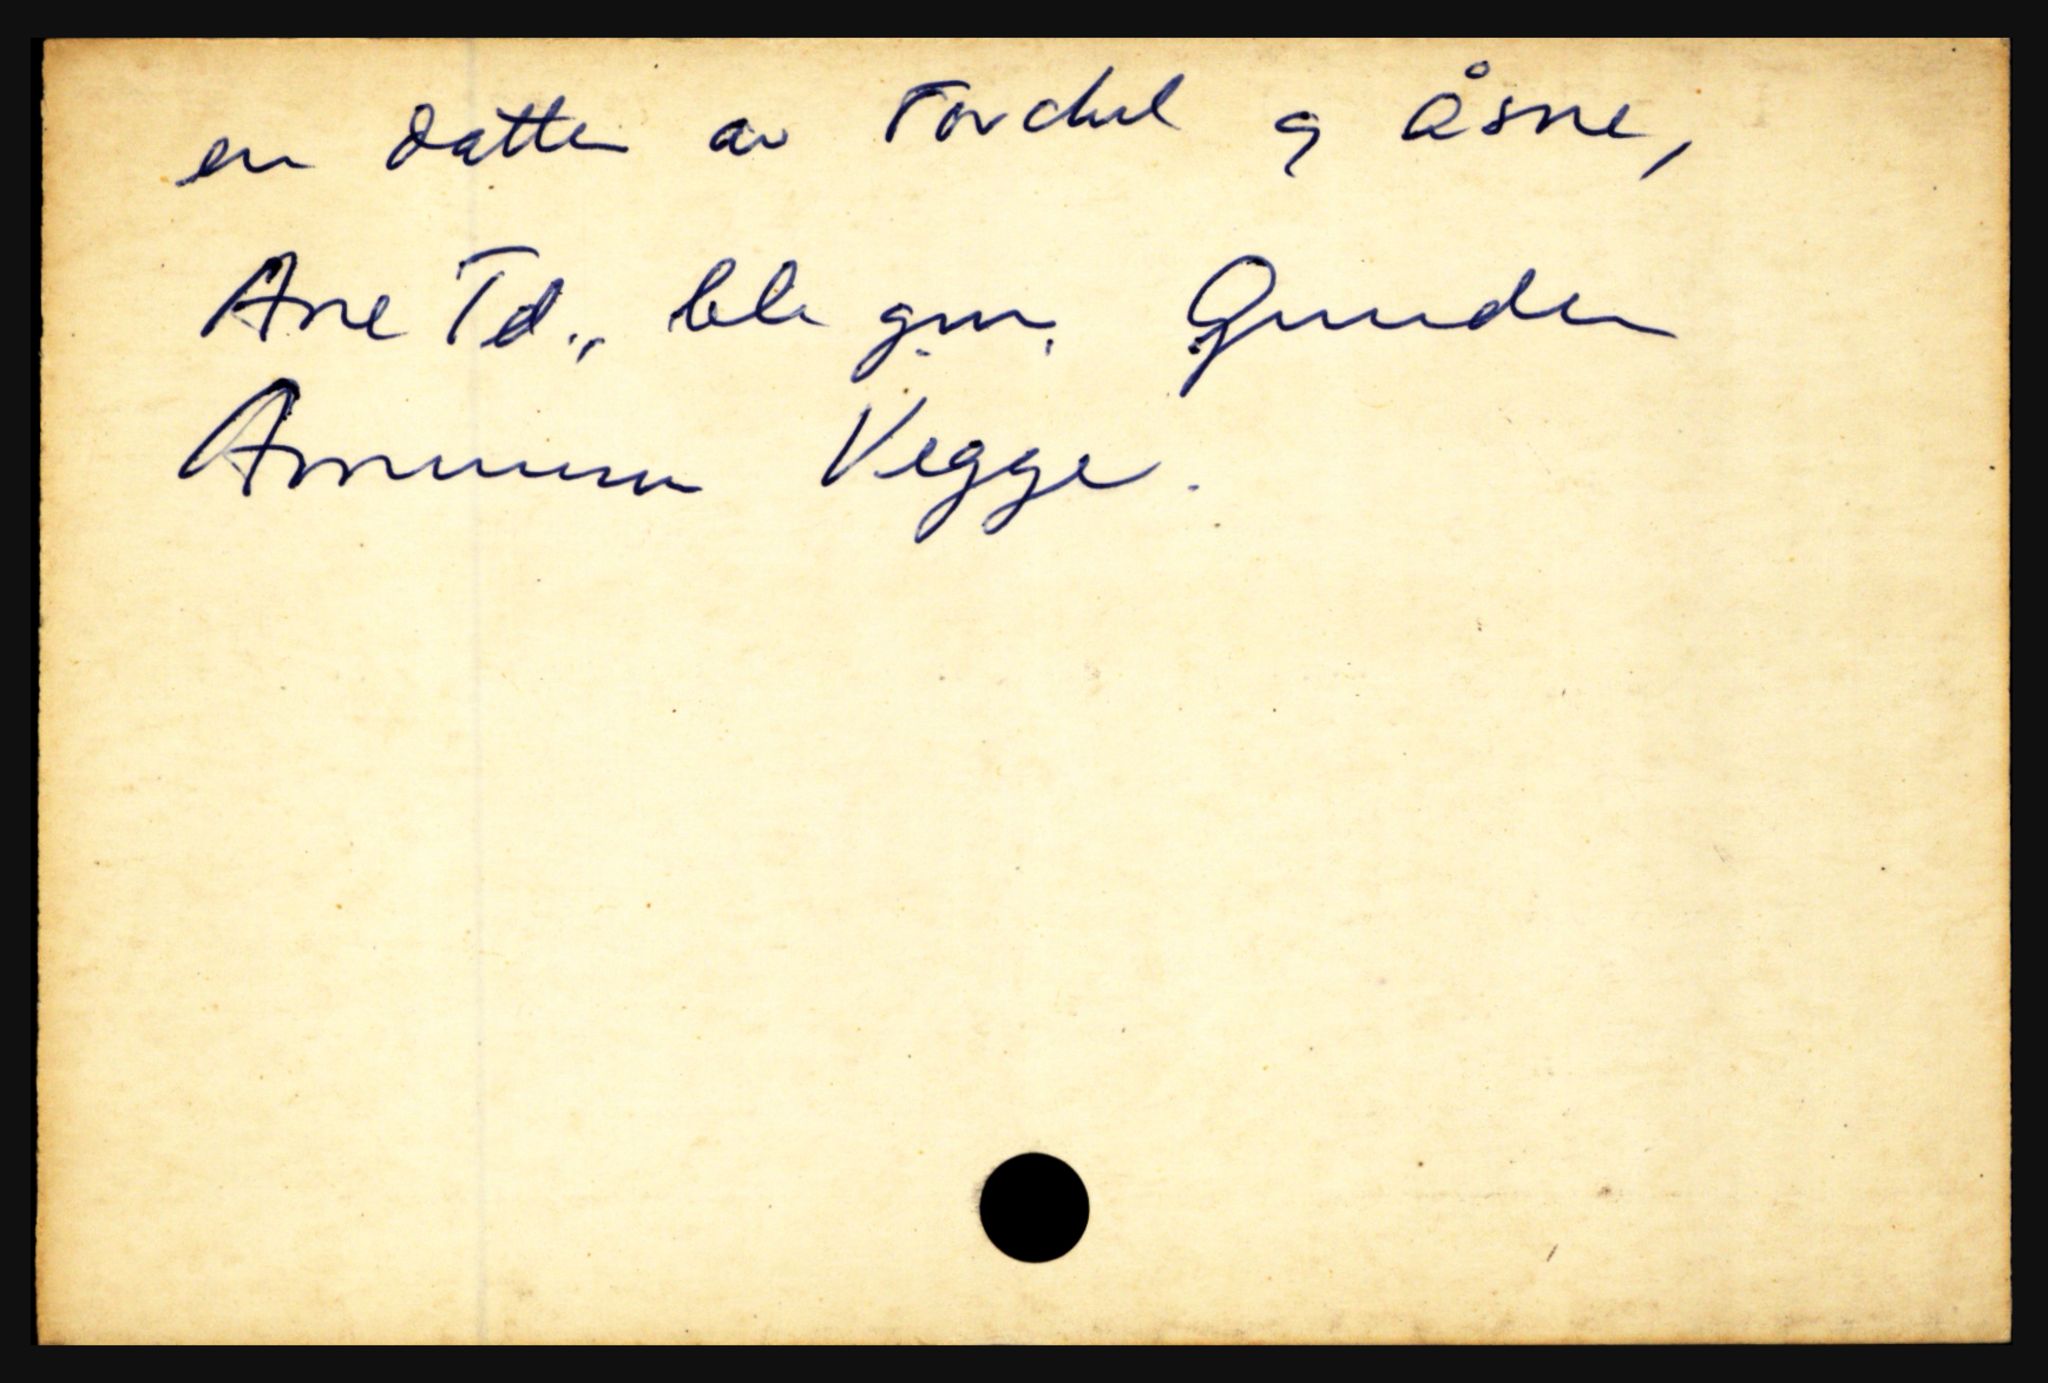 en datter av Torchel og Åsne,
Ane Td., ble g.m. Gunder
Arnesen Vegge.